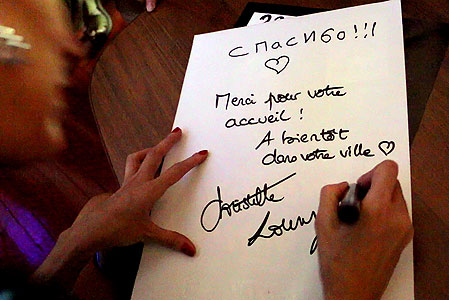 спасибо!!!
♡
Merci pour votre
accueil !
A bientôt
dans votre ville ♡